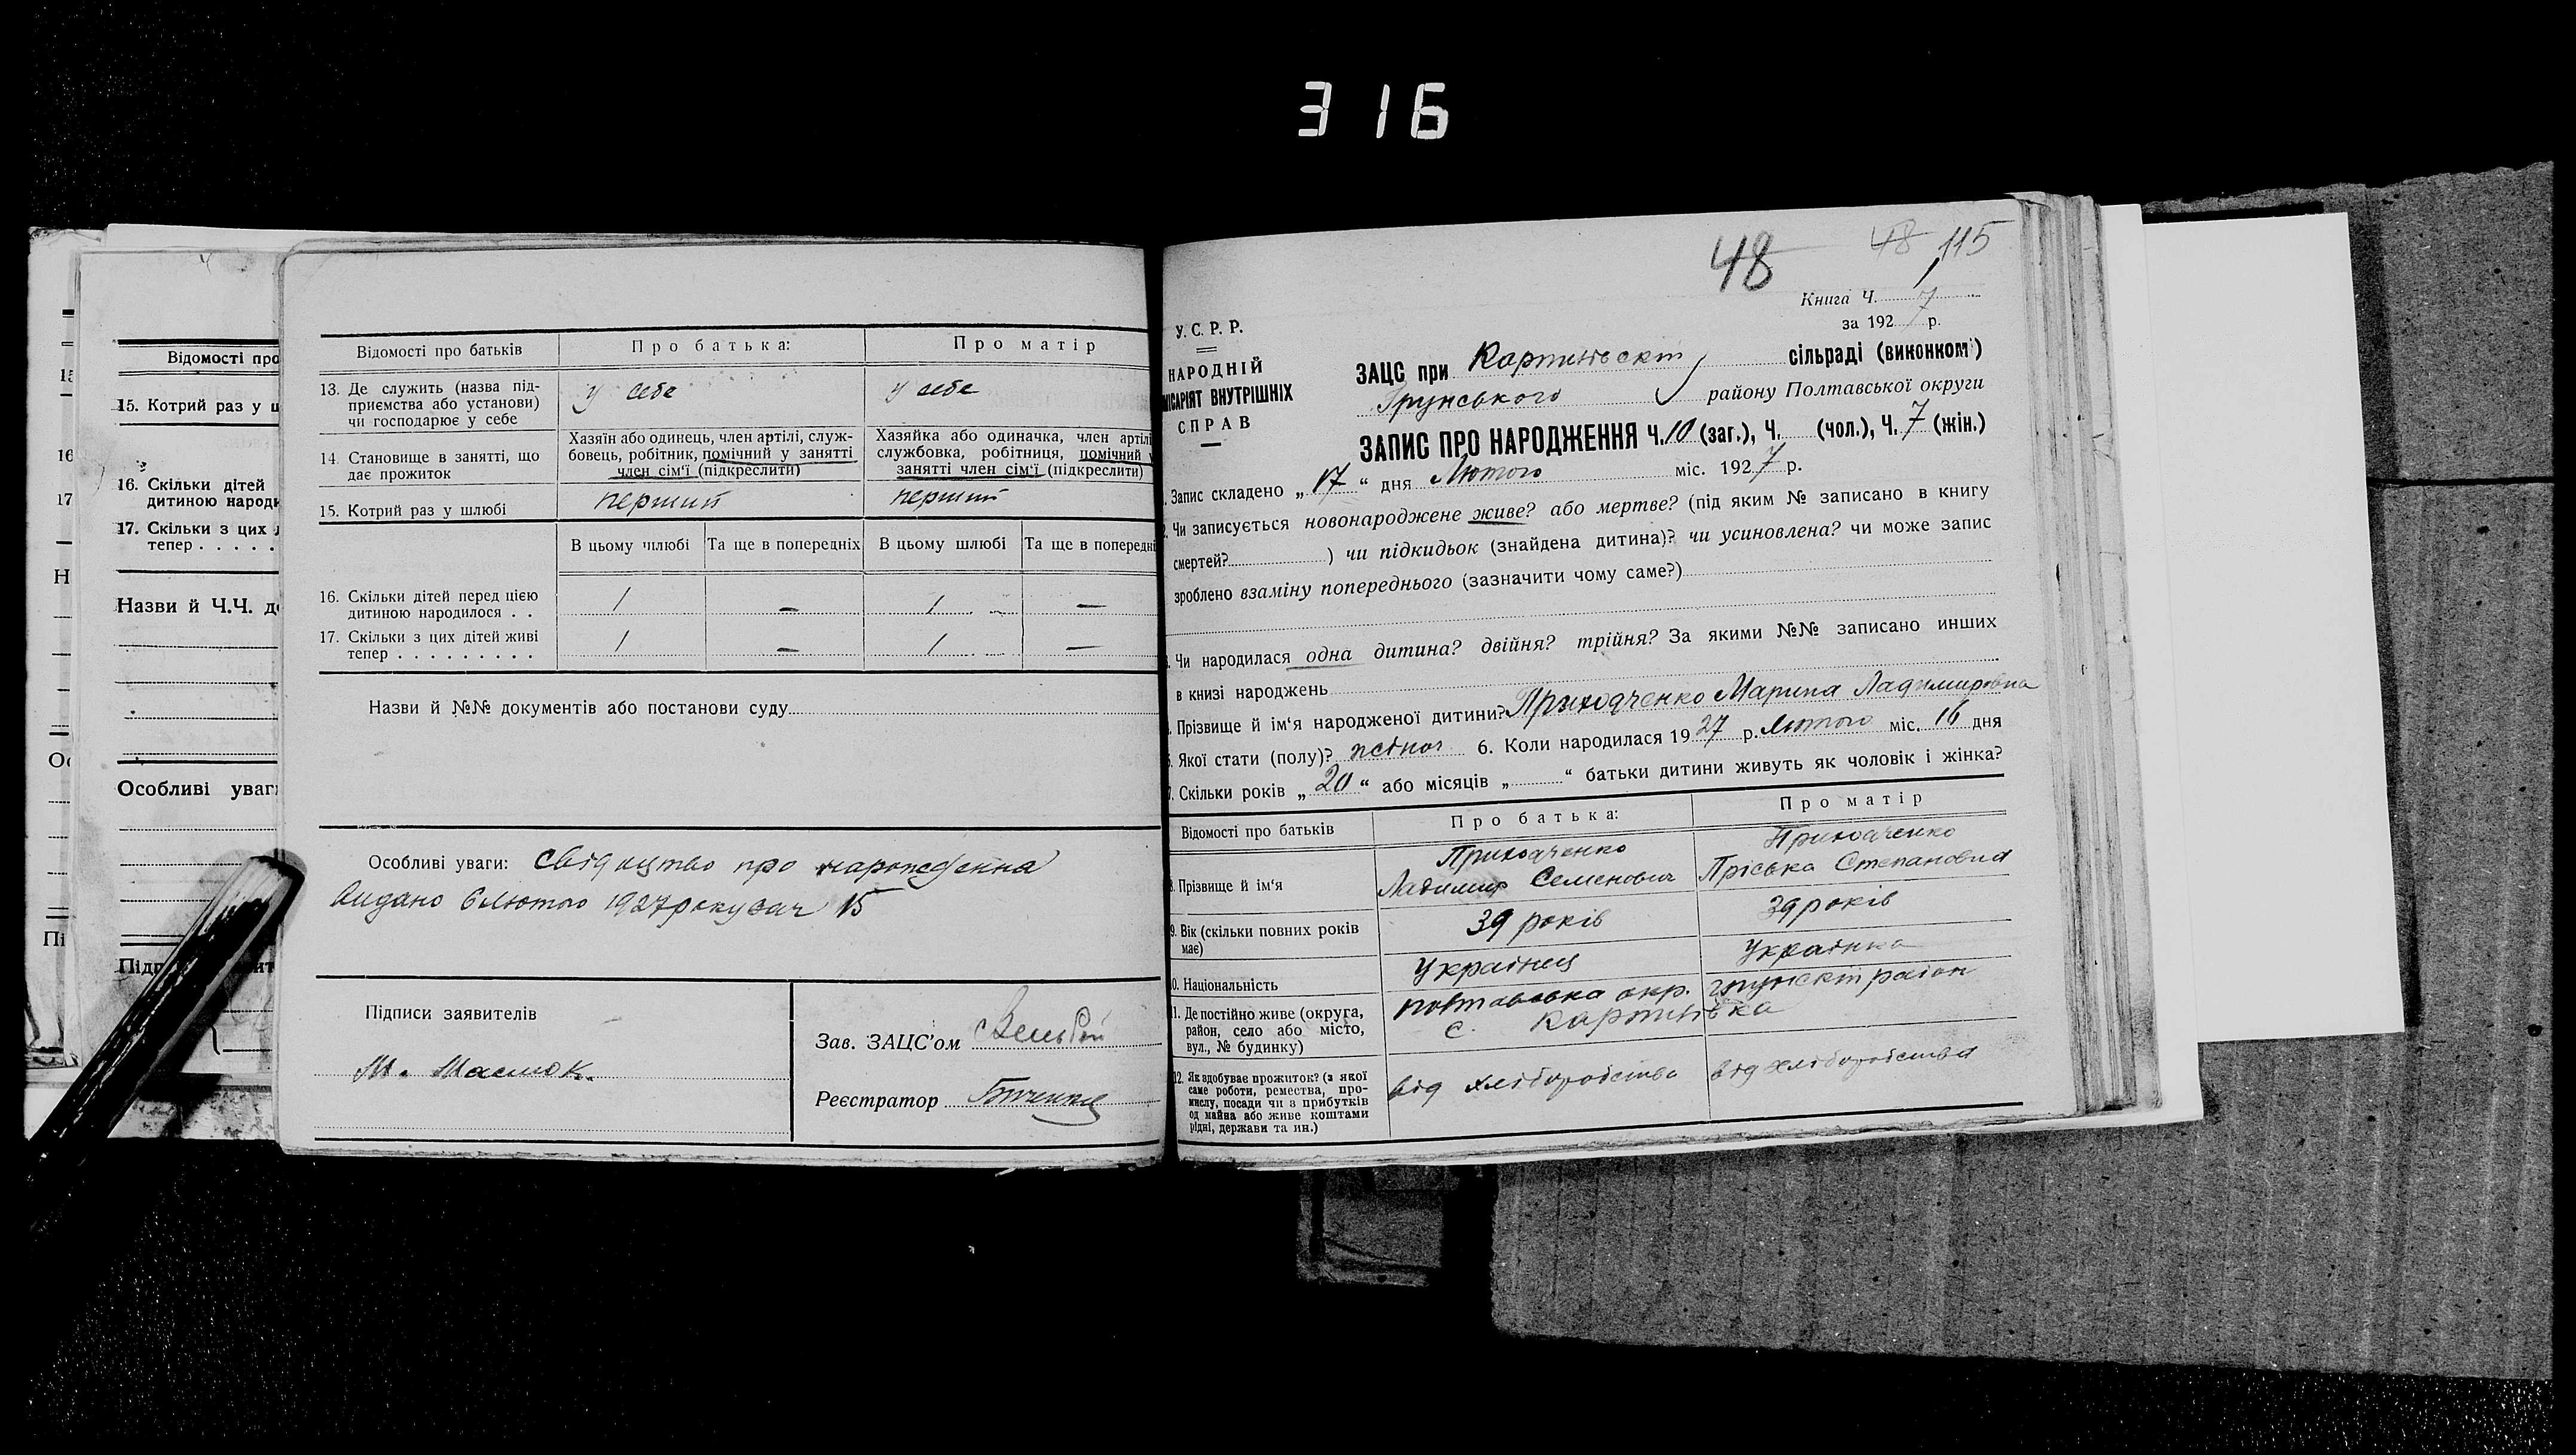 316
15. Котрий раз у ш
16. Скільки дітей
дитиною народи
17. Скільки з цих
тепер . . . . .
Назви й Ч.Ч. д
Особливі уваг
Відомості про
Відомості про батьків
Про батька:
Про матір
13. Де служить (назва під-
приємства або установи)
чи господарює у себе
у себе
у себе
14. Становище в занятті, що
дає прожиток
Хазяїн або одинець, член артілі, служ-
бовець, робітник, помічний у занятті
член сім'ї (підкреслити)
Хазяйка або одиначка, член артілі
службовка, робітниця, помічний у
занятті член сім'ї (підкреслити)
15. Котрий раз у шлюбі
перший
перший
В цьому шлюбі Та ще в попередніх В цьому шлюбі Та ще в попередні
16. Скільки дітей перед цією
дитиною народилося . .
1 — 1 —
17. Скільки з цих дітей живі
тепер . . . . . . . . .
1 — 1 —
Назви й №№ документів або постанови суду
Особливі уваги: Свідоцтво про народження
видано 6 лютого 1927 року 15
Підписи заявителів
М. Маслюк.
Зав. ЗАЦС'ом
Реєстратор
48 48 115
Книга Ч. 7
за 1927 р.
У. С. Р. Р.
НАРОДНІЙ
МІСАРІЯТ ВНУТРІШНІХ
СПРАВ
ЗАЦС при сільраді (виконком')
Грунського району Полтавської округи
ЗАПИС ПРО НАРОДЖЕННЯ Ч. 10 (заг.), Ч. (чол.), Ч. 7 (жін.)
Запис складено „ 17 “ дня Лютого міс. 1927 р.
Чи записується новонароджене живе? або мертве? (під яким № записано в книгу
смертей? ) чи підкидьок (знайдена дитина)? чи усиновлена? чи може запис
зроблено взаміну попереднього (зазначити чому саме?)
Чи народилася одна дитина? двійня? трійня? За якими №№ записано инших
в книзі народжень
Прізвище й ім'я народженої дитини? Приходченко Марина Ладимировна
Якої стати (полу)? жіноч 6. Коли народилася 1927 р. Лютого міс. 16 дня
Скільки років „ 20 “ або місяців „ “ батьки дитини живуть як чоловік і жінка?
Відомості про батьків
Про батька:
Про матір
8. Прізвище й ім'я
Приходченко
Ладимир Семенович
Приходченко
Пріська Степановна
9. Вік (скільки повних років
має)
39 років
39 років
10. Національність
Українец
Українка
11. Де постійно живе (округа,
район, село або місто,
вул., № будинку)
полтавська окр. район
с.
12. Як здобуває прожиток? (з якої
саме роботи, ремества, про-
мислу, посади чи з прибутків
од майна або живе коштами
рідні, держави та ин.)
від хліборобства
від хліборобства